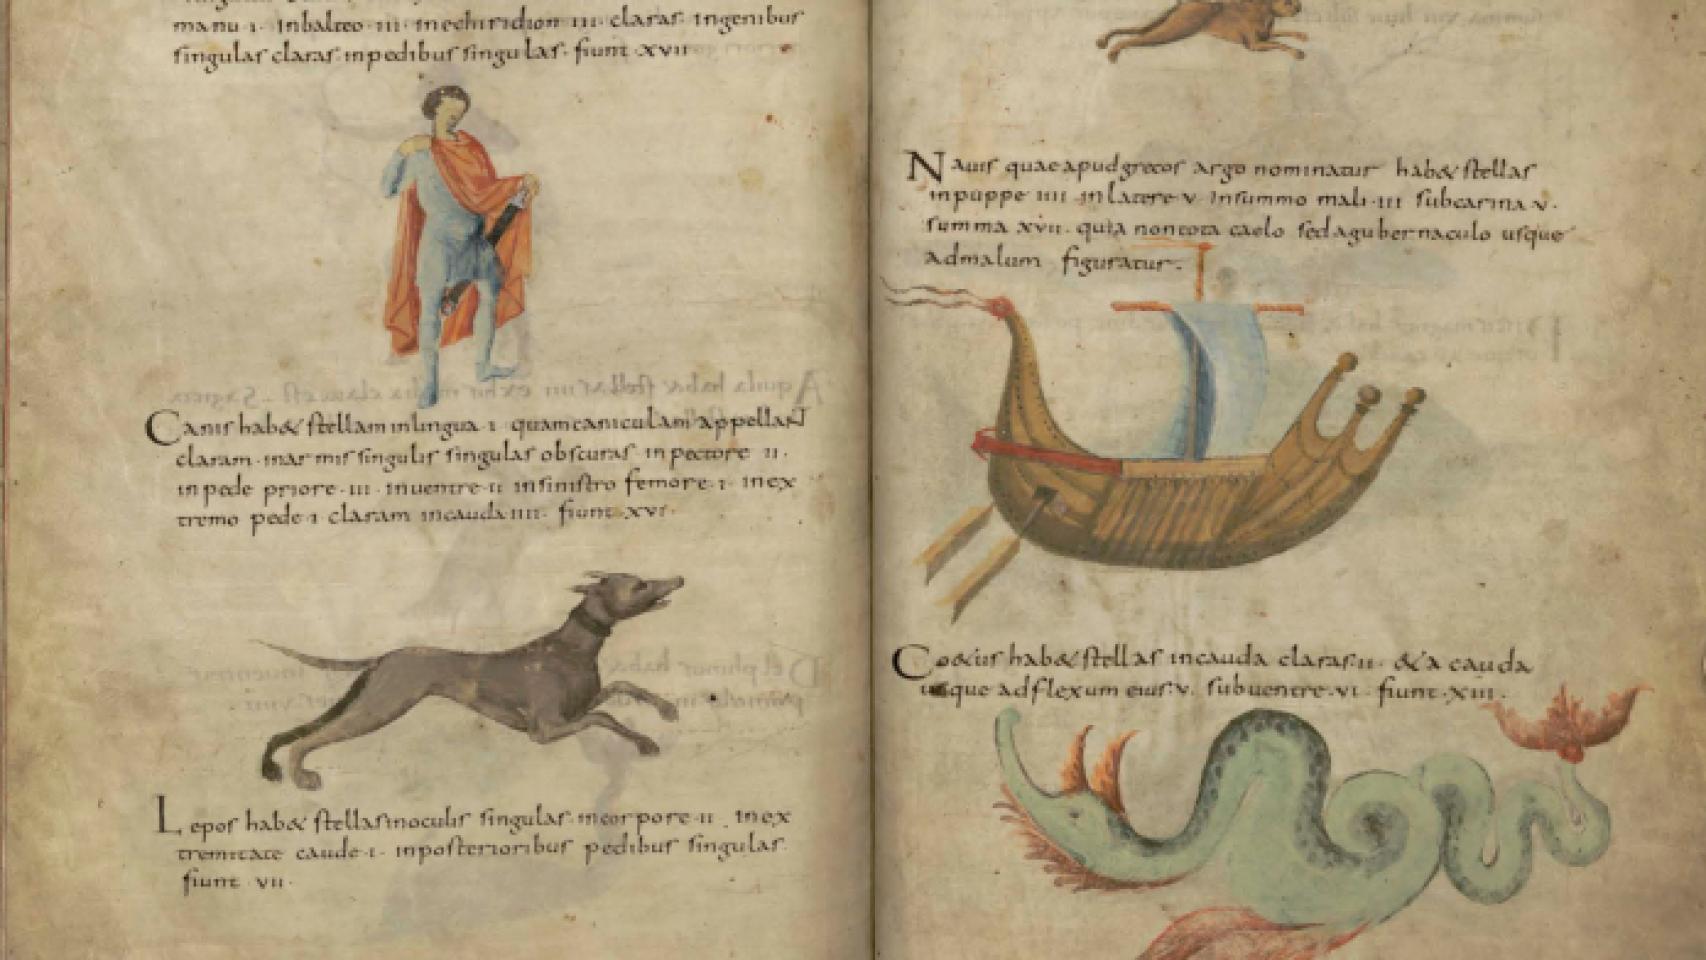 manu·i· inbalteo·iii· inechiridion·iii· claras· ingenibus
singulas claras· inpedibus singulas· fiunt·xvii
Canis hab& stellam inlingua·i· quam caniculam appellant
claram· inarmis singulis singulas obscuras· inpectore ii·
inpede priore·iii· inuentre·ii· insinistro femore·i· inex
tremo pede·i· claram incauda·iiii· fiunt·xvi·
Lepos hab& stellas inoculis singulas· incorpore·ii· inex
tremitate caude·i· inposterioribus pedibus singulas·
fiunt·vii·
Nauis quae apud grecos argo nominatur hab& stellas
inpuppe iiii· inlatere v· insummo mali·iii· subcarina v·
summa xvii· quia nontota caelo sed agubernaculo usque
admalum figuratur·
Co&us hab& stellas incauda claras·ii· & a cauda
usque adflexum eius·v· subuentre·vi· fiunt·xiii·